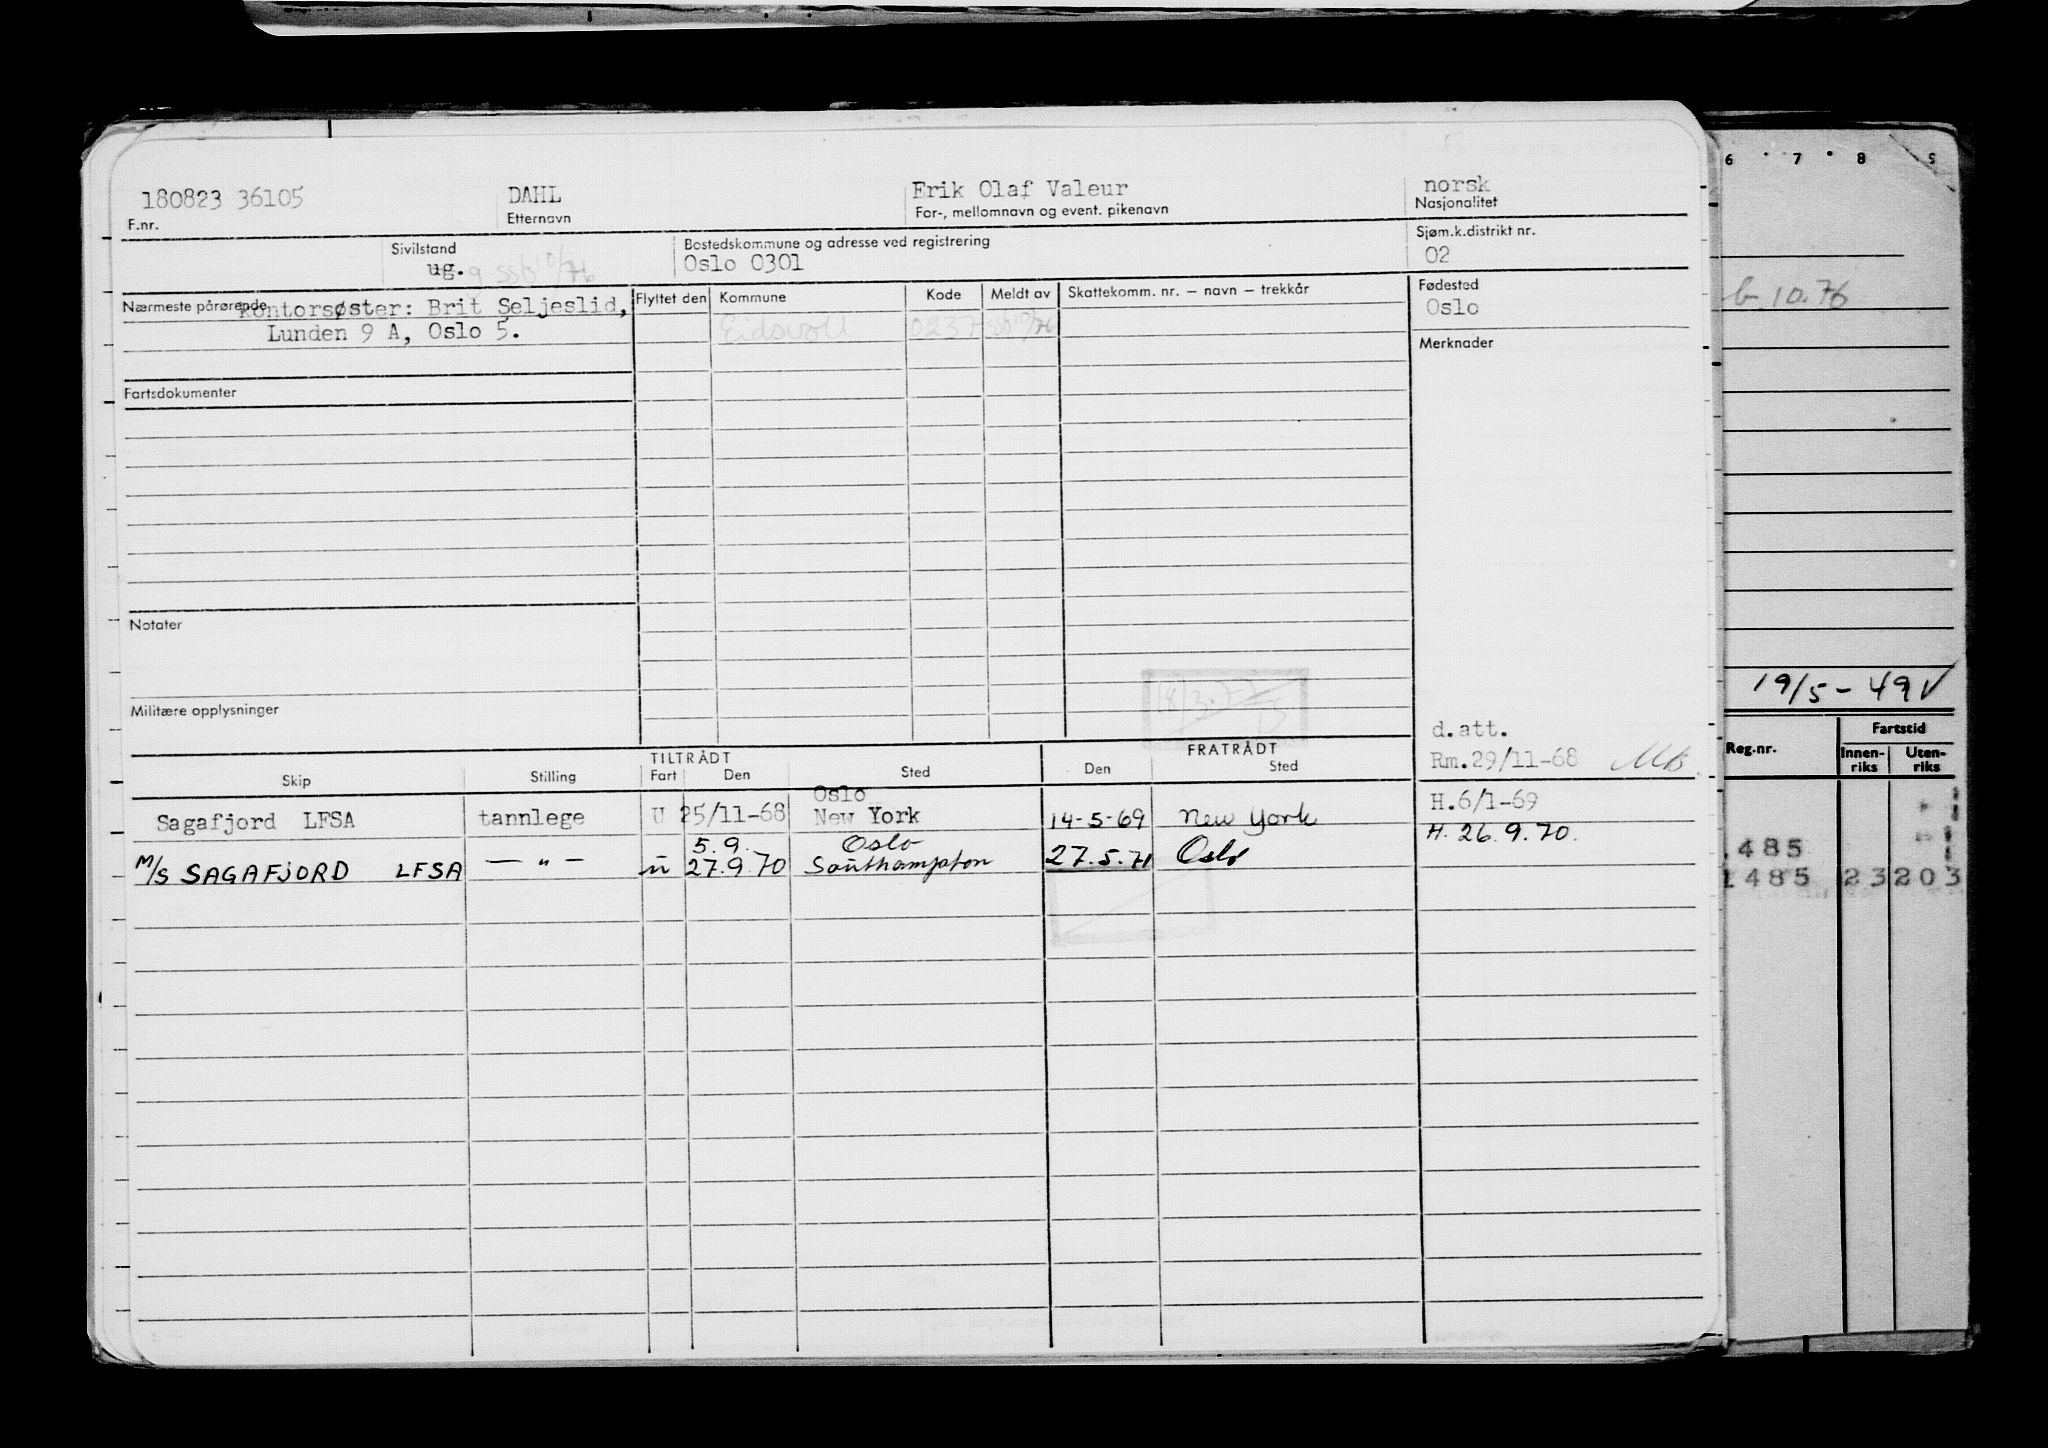 180823 36105 DAHL Erik Olaf Valeur norsk
F.nr. Etternavn For-, mellomnavn og event. pikenavn Nasjonalitet
Sivilstand Bostedskommune og adresse ved registrering Sjøm.k.distrikt nr.
ug. g ssb 10/76 Oslo 0301 02
Nærmeste pårørende Kontorsøster: Brit Seljeslid, Flyttet den Kommune Kode Meldt av Skattekomm. nr. — navn — trekkår Fødested
Lunden 9 A, Oslo 5. Eidsvoll 0237 ssb 10/76 Oslo
Merknader
Fartsdokumenter
Notater
Militære opplysninger
d.att.
TILTRÅDT FRATRÅDT Rm.29/11-68
Skip Stilling Fart Den Sted Den Sted
Oslo H.6/1-69
Sagafjord LFSA tannlege U 25/11-68 New York 14-5-69 New York
5.9. Oslo H. 26.9.70.
M/S SAGAFJORD LFSA — " — u 27.9.70 Southampton 27.5.71 Oslo
6 7 8
10.76
19/5-49
Reg.nr. Fartstid
Innen-riks Uten-riks
485
1485 23 203